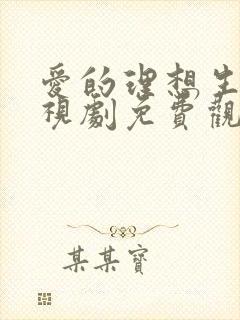 愛的理想生
視劇免費觀
某某寶